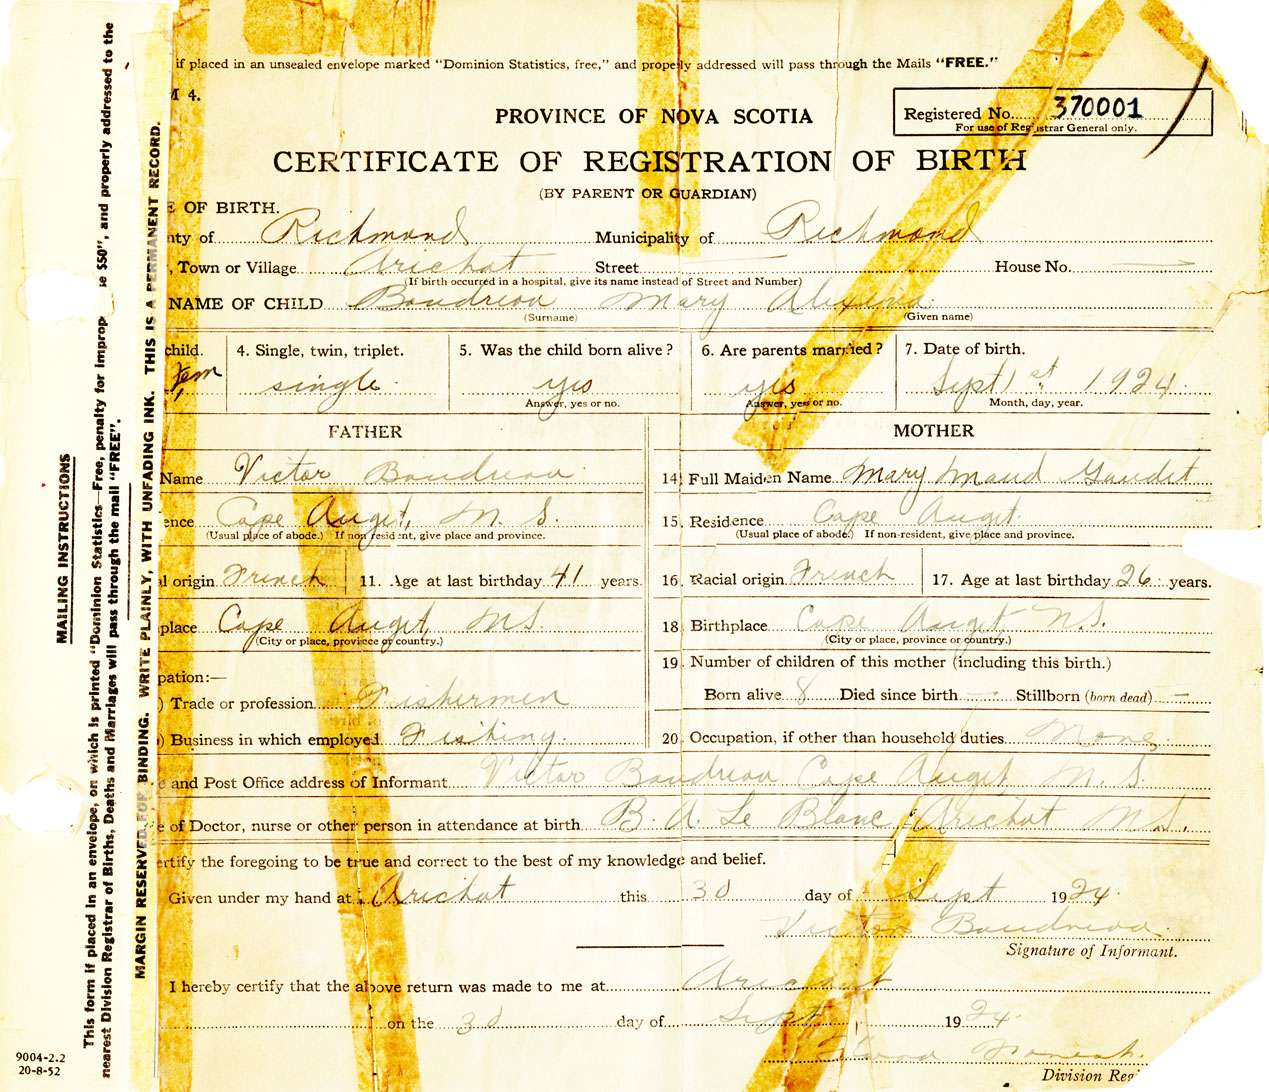 if placed in an unsealed envelope marked "Dominion Statistics, free," and properly addressed will pass through the Mails "FREE."
M 4.
PROVINCE OF NOVA SCOTIA
Registered No. 370001
For use of Registrar General only.
CERTIFICATE OF REGISTRATION OF BIRTH
(BY PARENT OR GUARDIAN)
E OF BIRTH.
nty of Richmond Municipality of Richmond
, Town or Village Arichat Street House No.
(If birth occurred in a hospital, give its name instead of Street and Number)
NAME OF CHILD Boudreau Mary Alexena
(Surname) (Given name)
child. 4. Single, twin, triplet. 5. Was the child born alive? 6. Are parents married? 7. Date of birth.
Fem single yes yes Sept 1st 1924
Answer, yes or no. Answer, yes or no. Month, day, year.
FATHER MOTHER
Name Victor Boudreau 14. Full Maiden Name Mary Maud Gaudet
ence Cape Auget, N. S. 15. Residence Cape Auget
(Usual place of abode.) If non resident, give place and province. (Usual place of abode.) If non-resident, give place and province.
al origin French 11. Age at last birthday 41 years. 16. Racial origin French 17. Age at last birthday 26 years.
place Cape Auget, N.S. 18. Birthplace Cape Auget N.S.
(City or place, province or country.) (City or place, province or country.)
pation:— 19. Number of children of this mother (including this birth.)
) Trade or profession Fishermen Born alive 8 Died since birth — Stillborn (born dead) —
) Business in which employed Fishing. 20. Occupation, if other than household duties None
e and Post Office address of Informant Victor Boudreau Cape Auget, N. S.
e of Doctor, nurse or other person in attendance at birth B. A. Le Blanc Arichat N.S.
ertify the foregoing to be true and correct to the best of my knowledge and belief.
Given under my hand at Arichat this 30 day of Sept 1924
Victor Boudreau
Signature of Informant.
I hereby certify that the above return was made to me at Arichat
on the 30 day of Sept 1924
Division Reg
MAILING INSTRUCTIONS
This form if placed in an envelope, on which is printed "Dominion Statistics—Free, penalty for improp se $50", and properly addressed to the
nearest Division Registrar of Births, Deaths and Marriages will pass through the mail "FREE".
MARGIN RESERVED FOR BINDING. WRITE PLAINLY, WITH UNFADING INK. THIS IS A PERMANENT RECORD.
9004-2.2
20-8-52